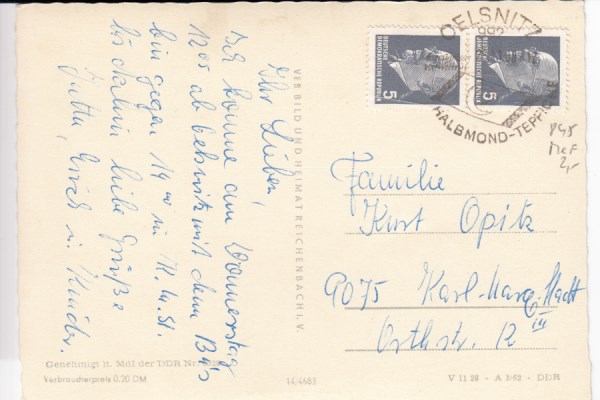 Ihr Lieben,
Ich komme am Donnerstag
12⁰⁵ ab Oelsnitz mit dem B4s
bin gegen 14⁰⁰ in K.M.St.
bis dahin liebe Grüße
Jutta, Erich u. Kinder.
Genehmigt lt. MdI der DDR Nr.
Verbraucherpreis 0,20 DM
VEB BILD UND HEIMAT REICHENBACH I. V.
14/4683
OELSNITZ
HALBMOND-TEPPICHE
DEUTSCHE
DEMOKRATISCHE REPUBLIK
5
DEUTSCHE
DEMOKRATISCHE REPUBLIK
5
845
MeF
2,-
Familie
Kurt Opitz
9075 Karl-Marx-Stadt
Orthstr. 12 III
V 11 28 - A 2/62 - DDR